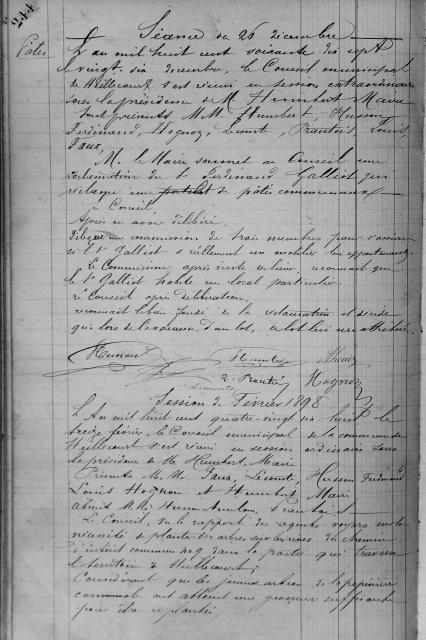 244
Séance du 26 décembre
L'an mil huit cent soixante dix sept
le vingt six décembre, le Conseil municipal
de Heillecourt s'est réuni en session extraordinaire
sous la présidence de M. Humbert Maire
Sont présents M.M. Humbert, Husson
Ferdinand, Hognon, Lecomte, Louis,
Jaux,
M. le Maire soumet au Conseil une
réclamation du Sr Ferdinand Galliot qui
réclame une de pâtis communaux
Le Conseil
Après en avoir délibéré,
délègue une commission de trois membres pour s'assurer
si le Sr Galliot a réellement un mobilier
La Commission après visite du lieu, reconnaît que
le Sr Galliot habite un local particulier
Le Conseil après délibération,
reconnaît le bien fondé de la réclamation et décide
que lors de d'un lot, ce lot lui sera attribué.
Hognon
Session de Février 1898
L'An mil huit cent quatre-vingt dix huit le
treize février, le Conseil municipal de la commune de
Heillecourt s'est réuni en session ordinaire sous
la présidence de M. Humbert, Maire
Présents M.M. Jaux, Lecomte, Husson Ferdinand
Louis Hognon et Humbert Maire
Absents M.M. Husson
Le Conseil, vu le rapport des agents voyers sur la
nécessité de planter des arbres sur les rives du chemin
d'intérêt commun dans la partie qui traverse
le territoire de Heillecourt;
Considérant que les jeunes arbres de la pépinière
communale ont atteint une grosseur suffisante
pour être replantés,